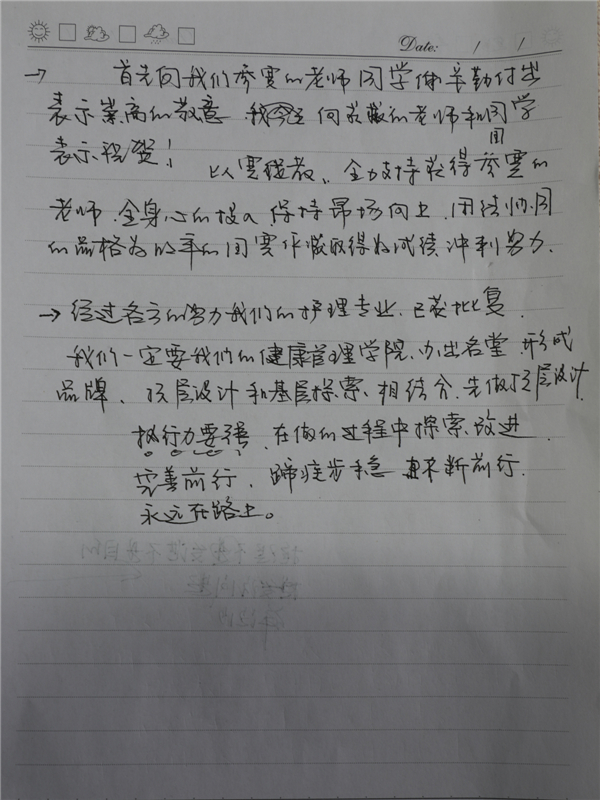 Date: / /
→ 首先向我们参赛的老师同学们辛勤付出
表示崇高的敬意 我 向获奖的老师和同学
表示祝贺!
以赛 教, 全力支持获得参赛的
老师 全身心的投入 保持昂扬向上 团结协同
的品格为 的 赛 取得好成绩 冲刺努力.
→ 经过各方的努力我们的护理专业 已获批复.
我们一定要我们的健康管理学院 办出名堂 形成
品牌、顶层设计和基层探索 相结合 先做顶层设计
执行力要强 在做的过程中探索 改进
完善前行, 蹄疾步稳 不断前行.
永远在路上。